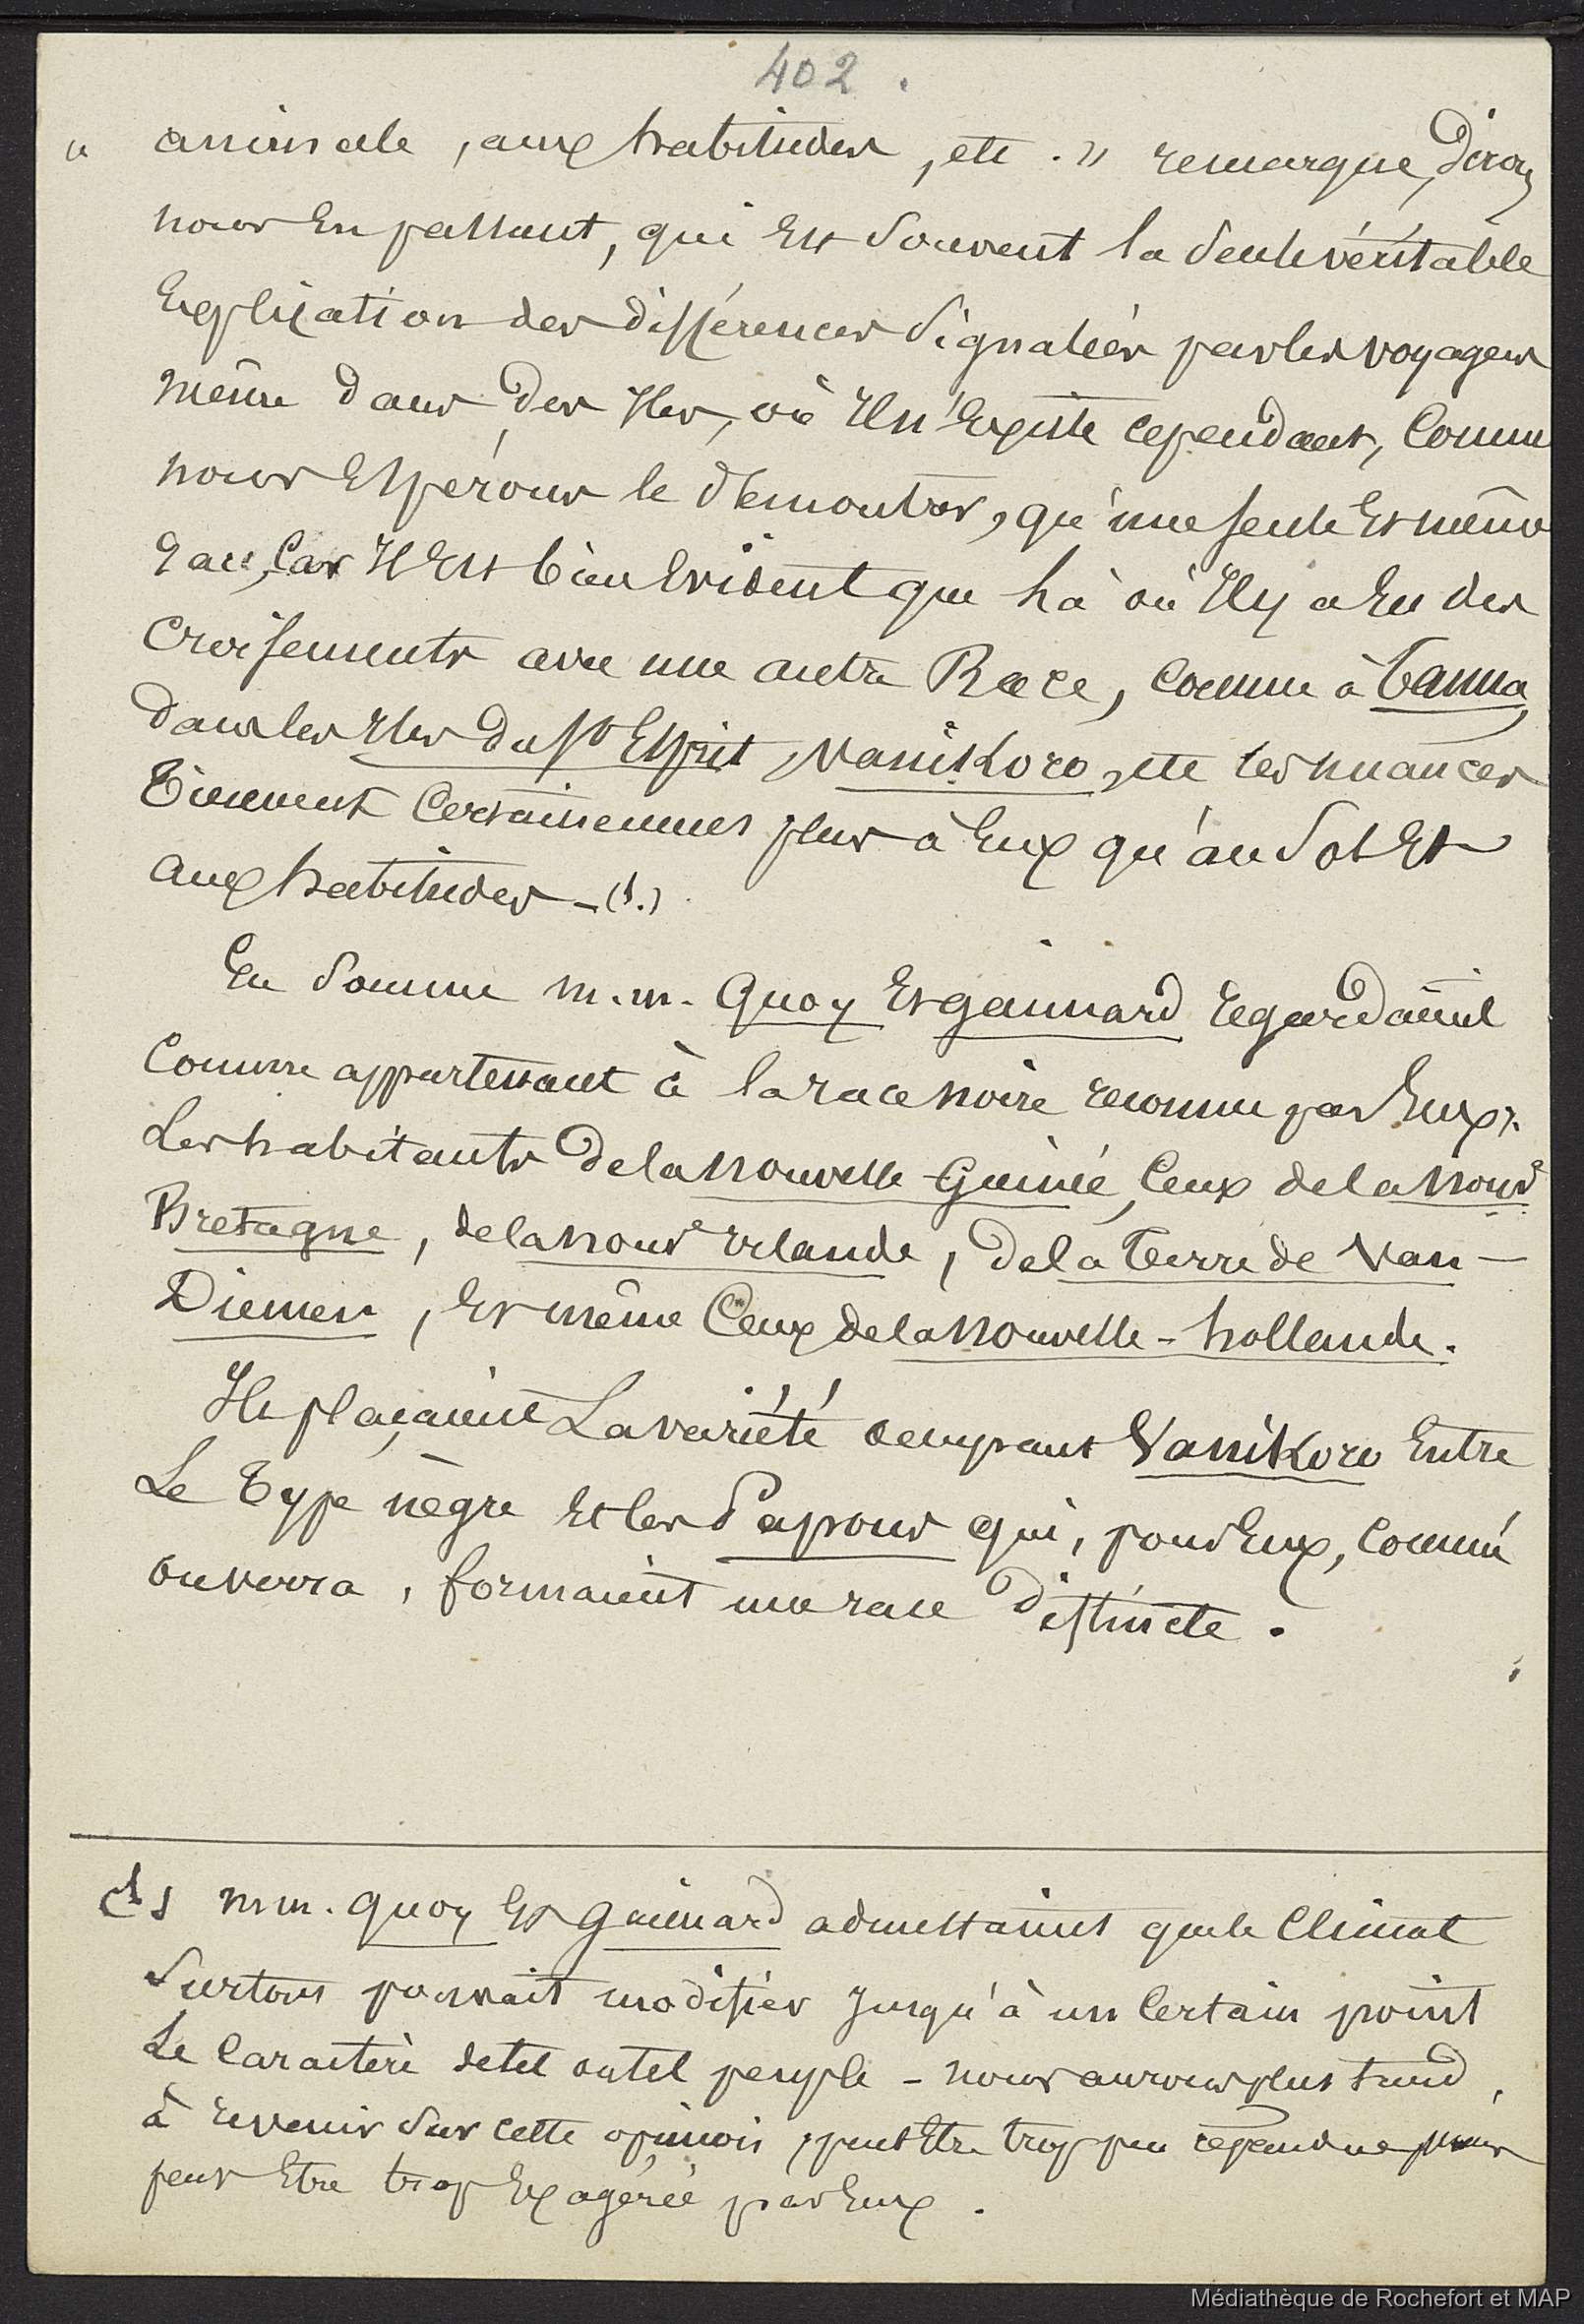 402.
" animale, aux habitudes, etc. " remarque, dirons
nous en passant, qui est souvent la seule véritable
explication des différences signalées par les voyageurs
même dans des Iles, où Il n'existe cependant, comme
nous espérons le démontrer, qu'une seule et même
race, Car Il est bien évident que là où Il y a eu des
croisements avec une autre Race, comme à Tanna,
dans les Iles du St Esprit, Vanikoro, etc les nuances
tiennent certainement plus à eux qu'au sol et
aux habitudes - (1.)
En somme m.m. Quoy et gaimard regardaient
comme appartenant à la race noire reconnue par eux:
Les habitants de la nouvelle-Guinée, ceux de la nouve
Bretagne, de la nouve Irlande, de la terre de Van-
Diemen, et même Ceux de la nouvelle-hollande.
Ils plaçaient La variété occupant Vanikoro entre
Le type nègre et les Papous qui, pour eux, comme
on verra, formaient une race distincte.
(1) m.m. Quoy et gaimard admettaient que le Climat
surtout pouvait modifier jusqu'à un certain point
Le caractère de tel ou tel peuple - nous aurons plus tard,
à revenir sur cette opinion, peut être trop peu répandue
peut être trop exagérée par eux.
Médiathèque de Rochefort et MAP